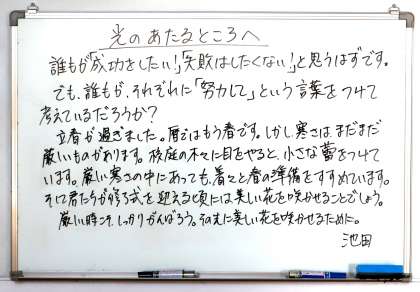 光のあたるところへ
誰もが「成功をしたい!」「失敗はしたくない!」と思うはずです。
でも、誰もが、それぞれに「努力して」という言葉をつけて
考えているだろうか?
立春が過ぎました。暦ではもう春です。しかし、寒さはまだまだ
厳しいものがあります。校庭の木々に目をやると、小さな蕾をつけて
います。厳しい寒さの中にあっても、着々と春の準備をすすめています。
そして君たちが修了式を迎える頃には美しい花を咲かせることでしょう。
厳しい時こそ、しっかりがんばろう。その先に美しい花を咲かせるために。
池田